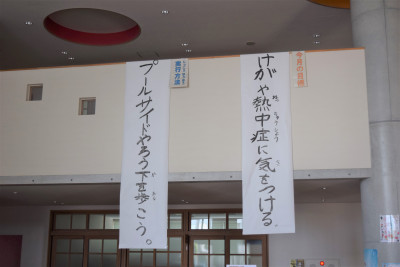 今月の目標
けがや熱中症に気をつける。
プールサイドやろう下を歩こう。